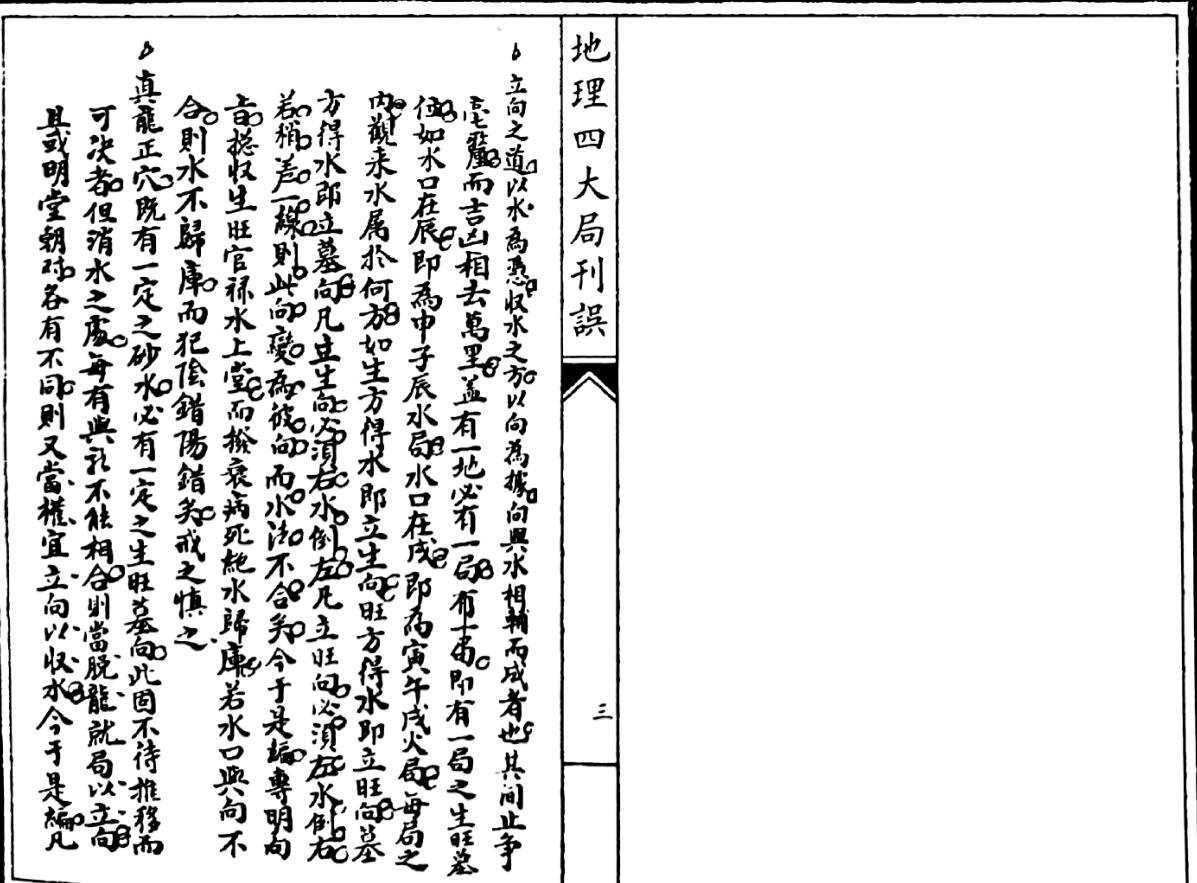 地理四大局刊誤
三
立向之道以水為憑收水之方以向為據向與水相輔而成者也其間止爭
毫釐而吉凶相去萬里蓋有一地必有一局有一局即有一局之生旺墓
位如水口在辰即為申子辰水局水口在戌即為寅午戌火局每局之
內觀來水属於何方如生方得水即立生向旺方得水即立旺向墓
方得水即立墓向凡立生向必須右水倒左凡立旺向必須左水倒右
若稍差一線則此向變為彼向而水法不合矣今于是編專明向
旨搃收生旺官禄水上堂而撥衰病死絶水歸庫若水口與向不
合則水不歸庫而犯陰錯陽錯矣戒之慎之
真龍正穴既有一定之砂水必有一定之生旺墓向此固不待推移而
可决者但消水之處每有與龍不能相合則當脱龍就局以立向
且或明堂朝对各有不同則又當權宜立向以收水今于是編凡